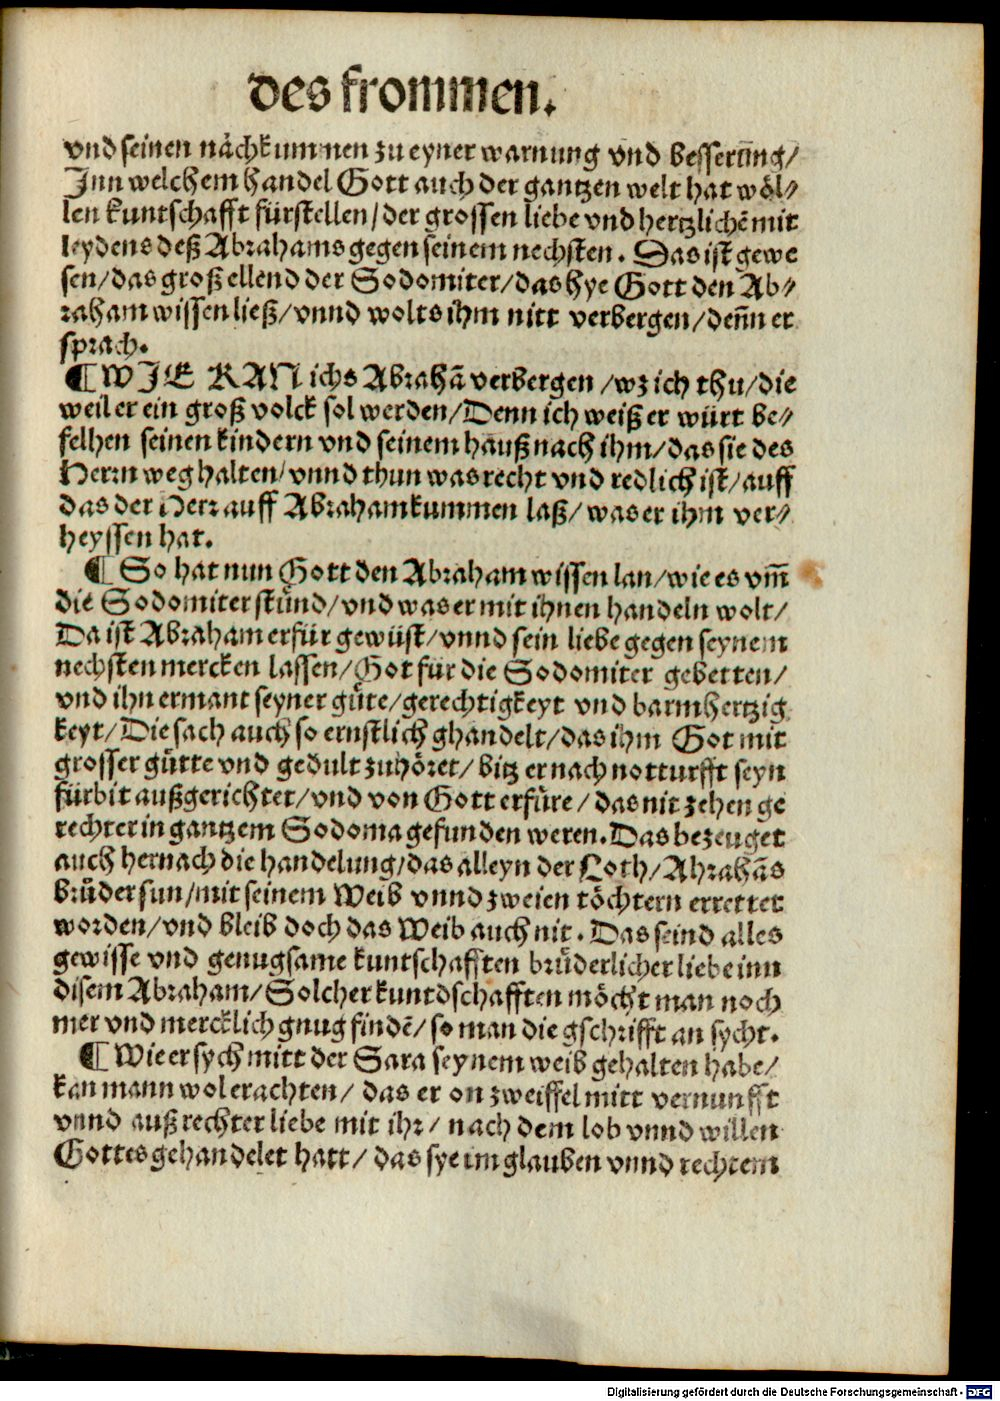 des frommen.
vnd seinen nåchkummen zu eyner warnung vnd besserūng/
Inn welchem handel Gott auch der gantzen welt hat wöl⸗
len kuntschafft fürstellen/der grossen liebe vnd hertzlichē mit
leydens deß Abrahams gegen seinem nechsten. Das ist gewe
sen/das groß ellend der Sodomiter/das hye Gott den Ab⸗
raham wissen ließ/vnnd wolts ihm nitt verbergen/deñn er
sprach.
¶ WIE KAN ichs Abrahā verbergen /wz ich thu/die
weil er ein groß volck sol werden/Denn ich weiß er würt be⸗
felhen seinen kindern vnd seinem hauß nach ihm/das sie des
Herrn weg halten/vnnd thun was recht vnd redlich ist/auff
das der Herr auff Abraham kummen laß/was er ihm ver⸗
heyssen hat.
¶ So hat nun Gott den Abraham wissen lan/wie es vm̄
die Sodomiter stůnd/vnd was er mit ihnen handeln wolt/
Da ist Abraham erfür gewüst/vnnd sein liebe gegen seynem
nechsten mercken lassen/Got für die Sodomiter gebetten/
vnd ihn ermant seyner gůte/gerechtigkeyt vnd barmhertzig
keyt/Die sach auch so ernstlich ghandelt/das ihm Got mit
grosser gůtte vnd gedult zuhöret/bitz er nach notturfft seyn
fürbit außgerichtet/vnd von Gott erfůre/das nit zehen ge
rechter in gantzem Sodoma gefunden weren.Das bezeuget
auch hernach die handelung/das alleyn der Loth/Abrahās
brůder sun/mit seinem Weib vnnd zweien töchtern errettet
worden/vnd bleib doch das Weib auch nit. Das seind alles
gewisse vnd genugsame kuntschafften brůderlicher liebe inn
disem Abraham/Solcher kuntdschafften möcht man noch
mer vnd mercklich gnug findē/so man die gschrifft an sycht.
¶ Wie er sych mitt der Sara seynem weib gehalten habe/
kan mann wol erachten/ das er on zweiffel mitt vernunfft
vnnd auß rechter liebe mit ihr/ nach dem lob vnnd willen
Gottes gehandelet hatt/ das sye im glauben vnnd rechtem
Digitalisierung gefördert durch die Deutsche Forschungsgemeinschaft - DFG